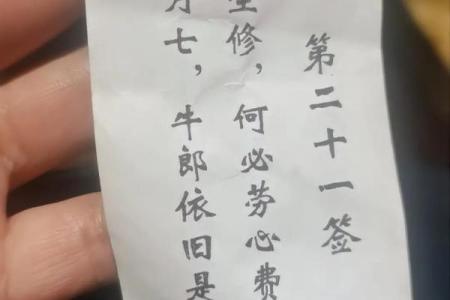 第二十一签
修，何必劳心费
月七，牛郎依旧是